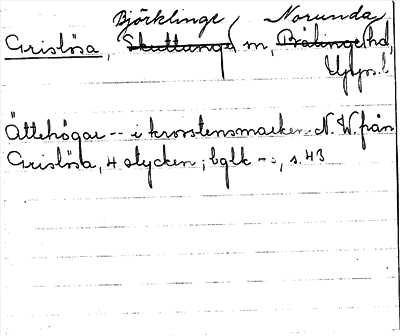 Björklinge Norunda
Grislösa, Skuttunge m, Bälinge hd,
Upps. l
Ättehögar -- i kvarstensmarken N.W. från
Grislösa, 4 stycken; bglk -:, s. 43